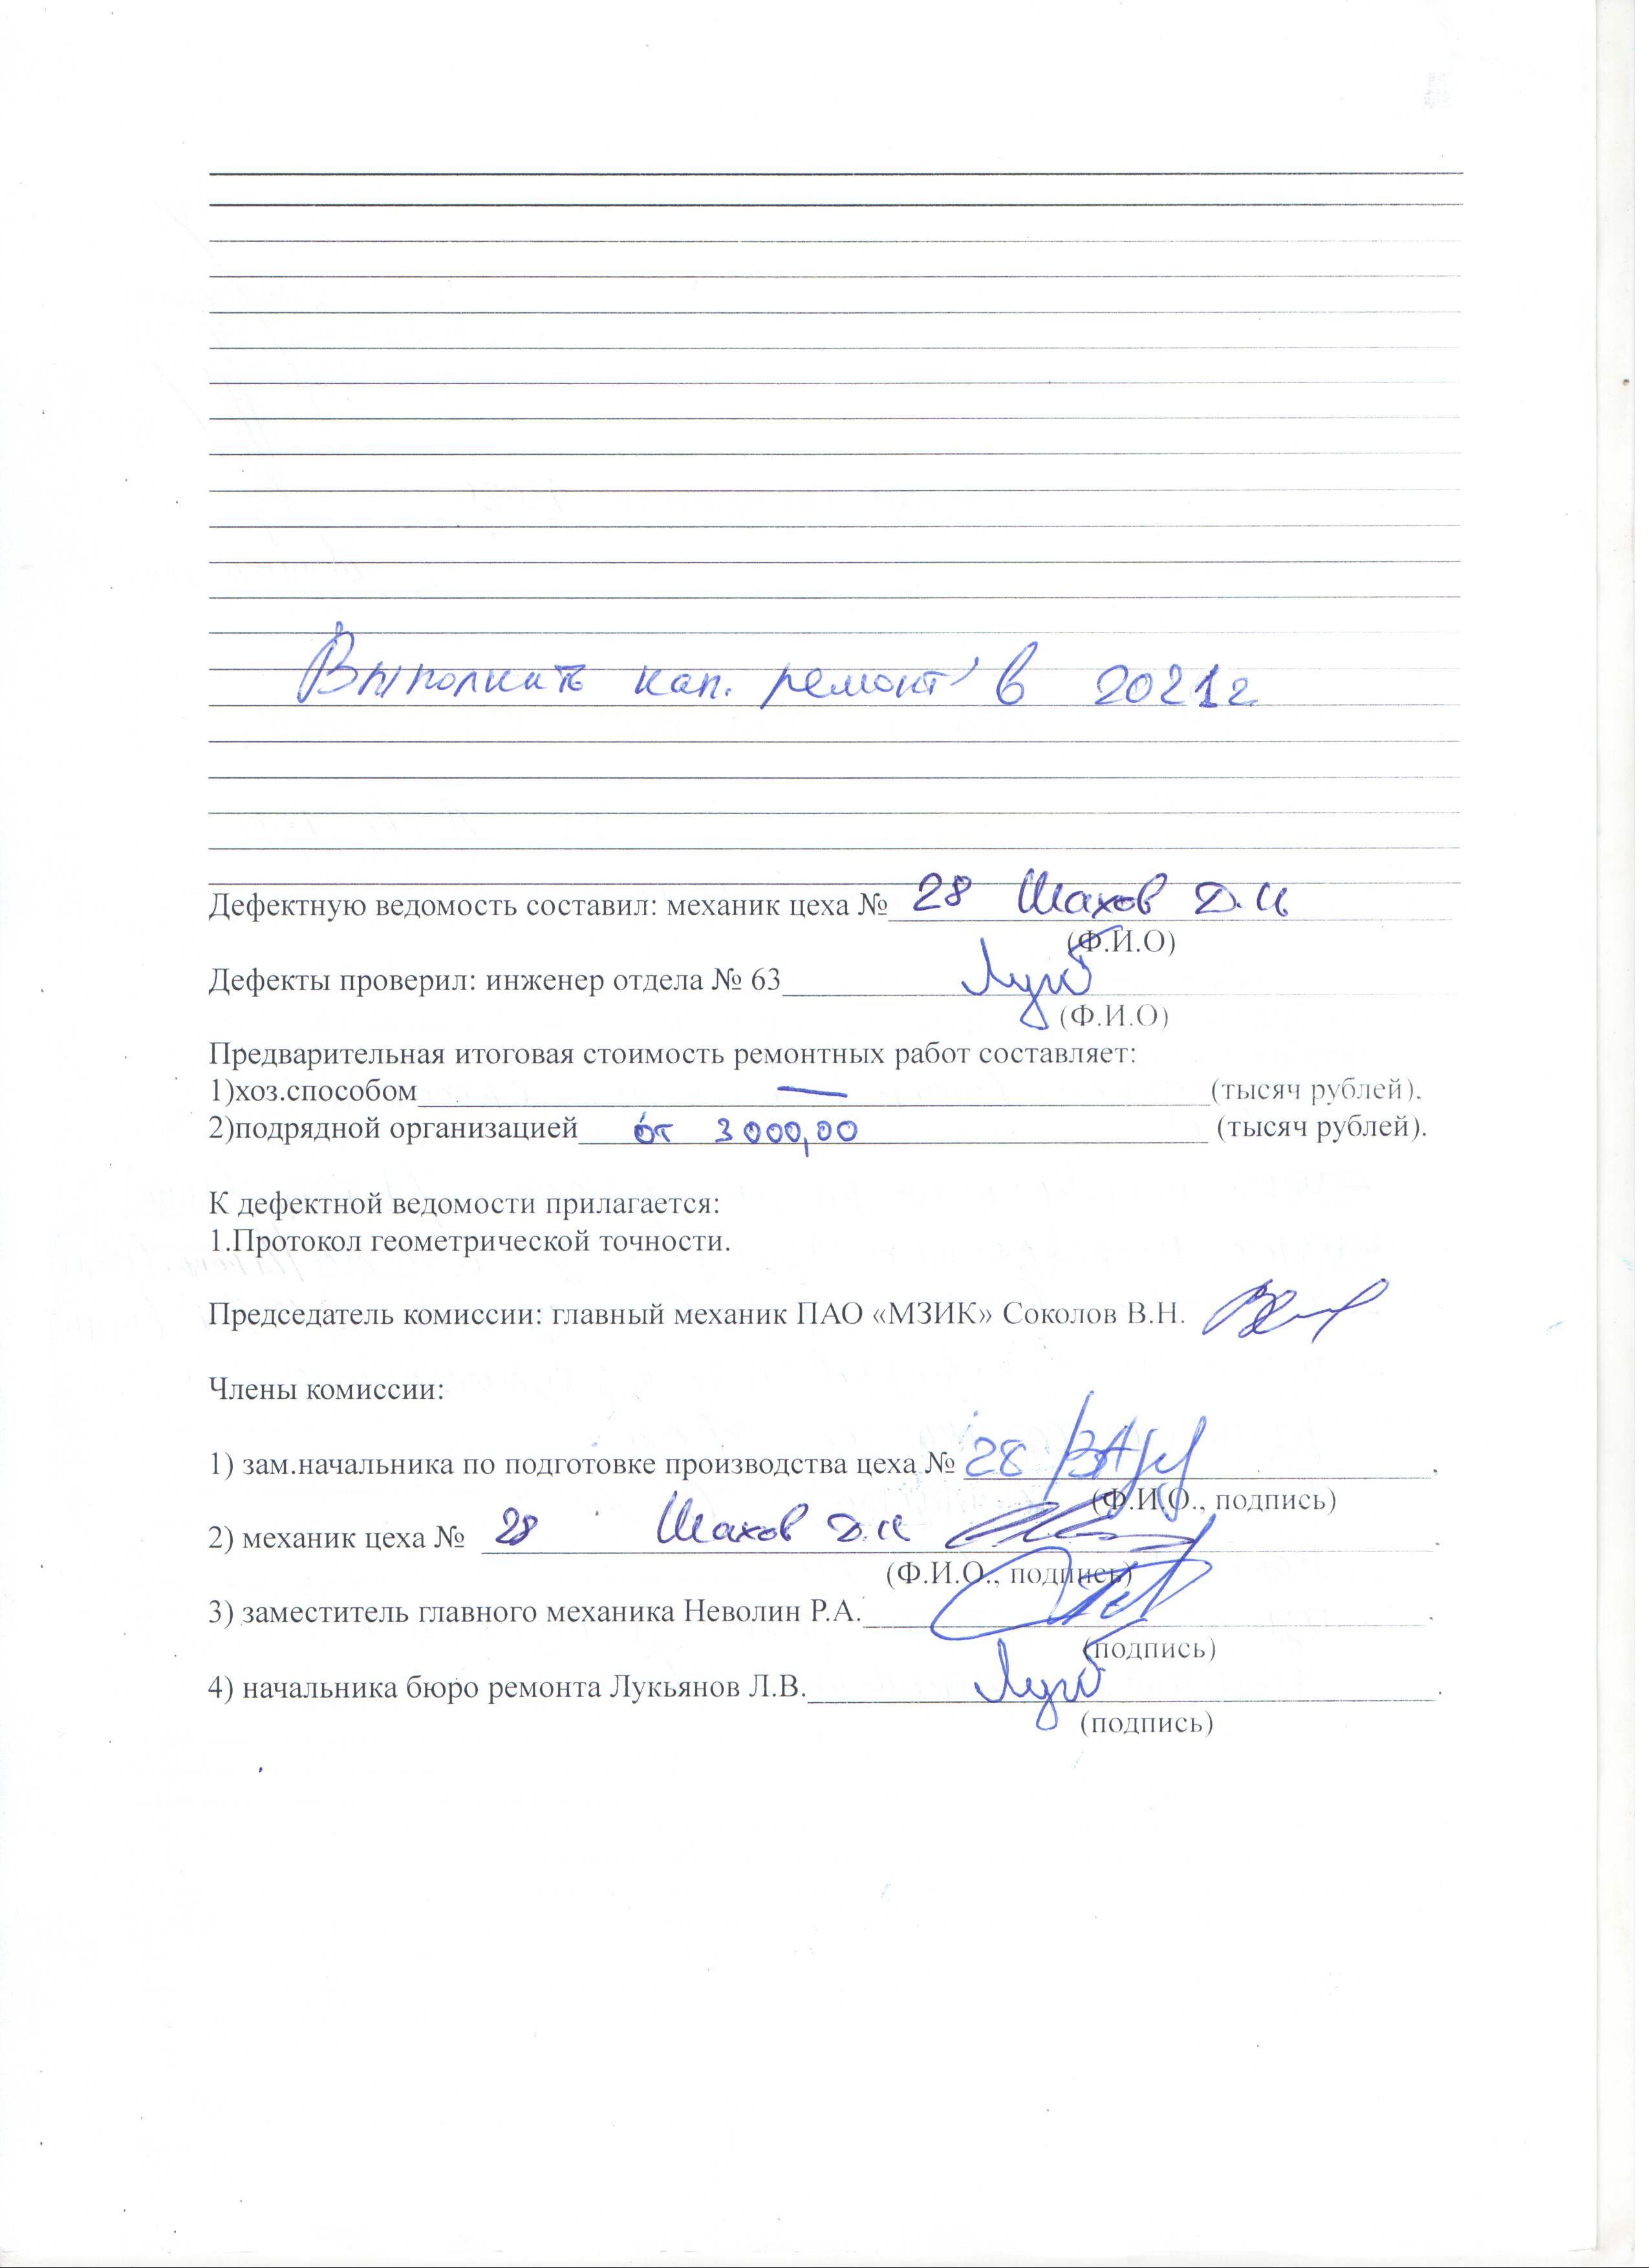 Выполнить кап. ремонт в 2021г
Дефектную ведомость составил: механик цеха № 28 Шахов Д.И
(Ф.И.О)
Дефекты проверил: инженер отдела № 63
(Ф.И.О)
Предварительная итоговая стоимость ремонтных работ составляет:
1)хоз.способом — (тысяч рублей).
2)подрядной организацией от 3000,00 (тысяч рублей).
К дефектной ведомости прилагается:
1.Протокол геометрической точности.
Председатель комиссии: главный механик ПАО «МЗИК» Соколов В.Н.
Члены комиссии:
1) зам.начальника по подготовке производства цеха № 28
(Ф.И.О., подпись)
2) механик цеха № 28 Шахов Д.И
(Ф.И.О., подпись)
3) заместитель главного механика Неволин Р.А.
(подпись)
4) начальника бюро ремонта Лукьянов Л.В.
(подпись)